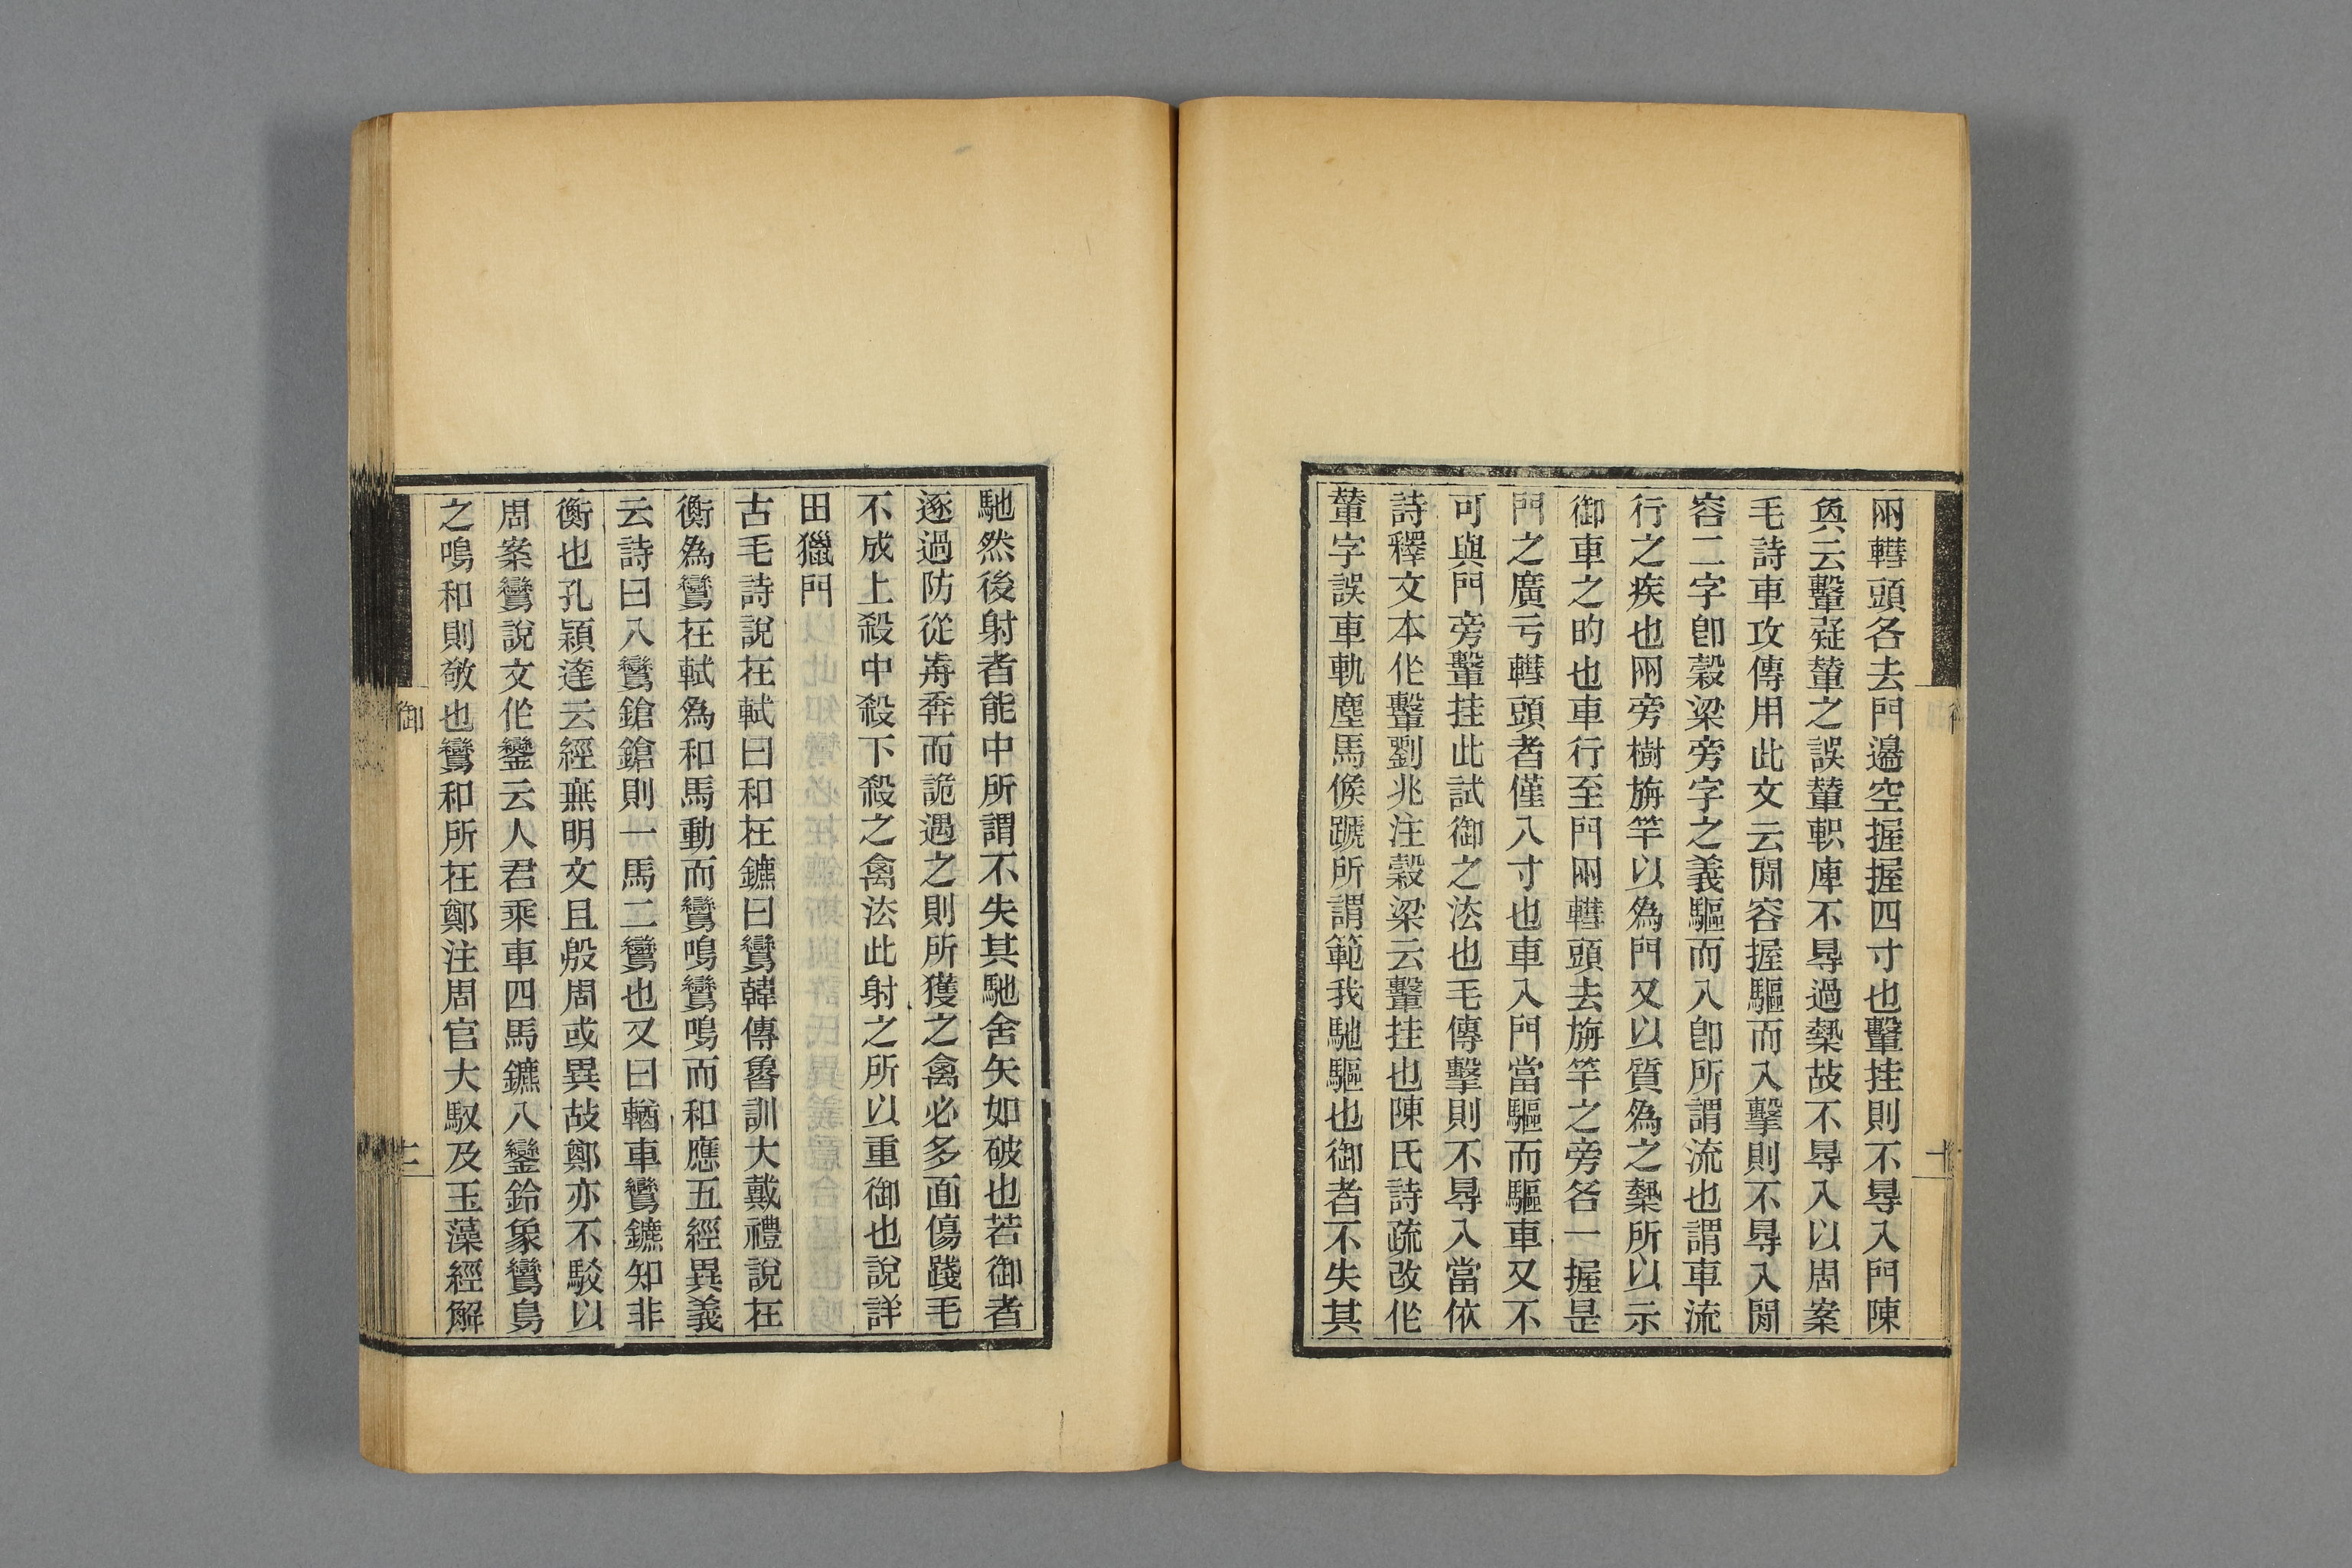 兩轊頭各去門邊空握握四寸也轚挂則不㝵入門陳
奐云轚疑蓳之誤蓳軹庳不㝵過槷故不㝵入以周案
毛詩車攻傳用此文云閒容握驅而入擊則不㝵入閒
容二字卽穀梁旁字之義驅而入卽所謂流也謂車流
行之疾也兩旁樹旃竿以爲門又以質爲之槷所以示
御車之旳也車行至門兩轊頭去旃竿之旁各一握是
門之廣亏轊頭者僅八寸也車入門當驅而驅車又不
可與門旁轚挂此試御之法也毛傳擊則不㝵入當依
詩釋文本作轚劉兆注穀梁云轚挂也陳氏詩疏改作
蓳字誤車軌塵馬候蹏所謂範我馳驅也御者不失其
馳然後射者能中所謂不失其馳舍矢如破也若御者
逐過防從歬奔而詭遇之則所獲之禽必多面傷踐毛
不成上殺中殺下殺之禽法此射之所以重御也說詳
田獵門
古毛詩說在軾曰和在鑣曰鸞韓傳魯訓大戴禮說在
衡爲鸞在軾爲和馬動而鸞鳴鸞鳴而和應五經異義
云詩曰八鸞鎗鎗則一馬二鸞也又曰輶車鸞鑣知非
衡也孔穎達云經無明文且殷周或異故鄭亦不駁以
周案鸞說文作鑾云人君乘車四馬鑣八鑾鈴象鸞鳥
之鳴和則敬也鸞和所在鄭注周官大馭及玉藻經解
御
十二